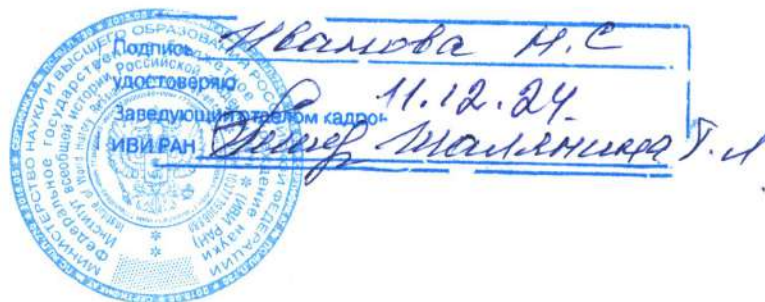 Подпись Иванова Н.С
удостоверяю
11.12.24.
Заведующий отделом кадров
ИВИ РАН Шалянина Т.Л
МИНИСТЕРСТВО НАУКИ И ВЫСШЕГО ОБРАЗОВАНИЯ РОССИЙСКОЙ ФЕДЕРАЦИИ
Федеральное государственное бюджетное учреждение науки
Институт всеобщей истории Российской
(ИВИ РАН)
Institute of World History